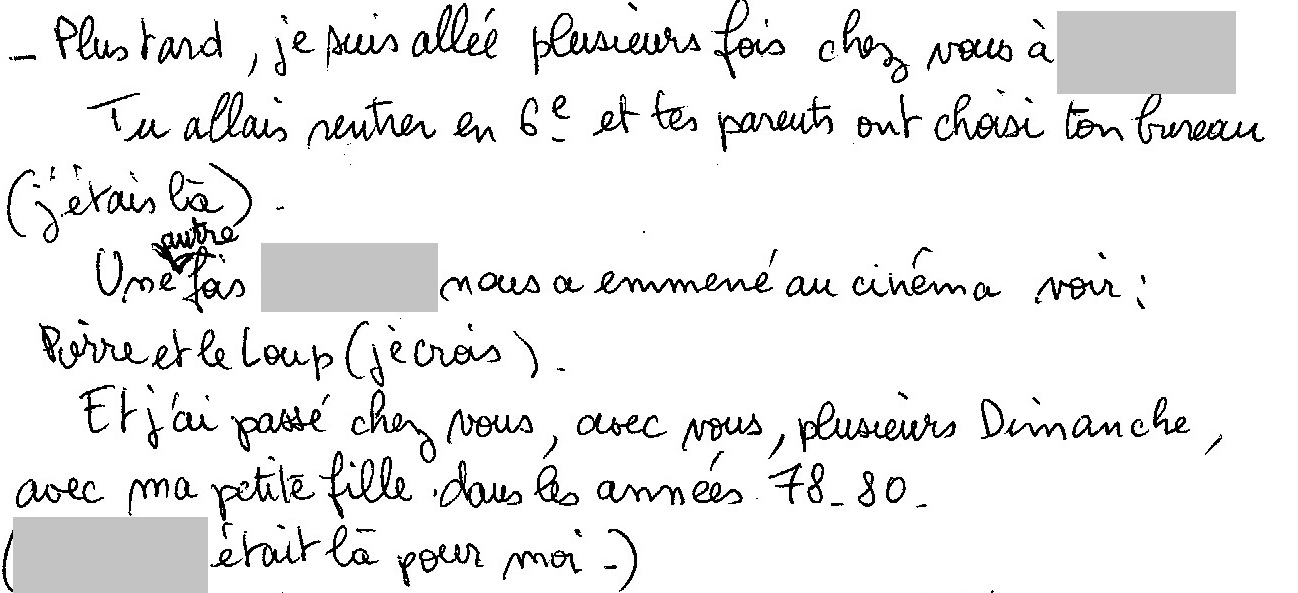 - Plus tard, je suis allée plusieurs fois chez vous à
Tu allais rentrer en 6e et tes parents ont choisi ton bureau
(j'étais là).
Une autre fois nous a emmené au cinéma voir :
Pierre et le Loup (je crois).
Et j'ai passé chez vous, avec vous, plusieurs Dimanche,
avec ma petite fille dans les années 78-80.
( était là pour moi -)